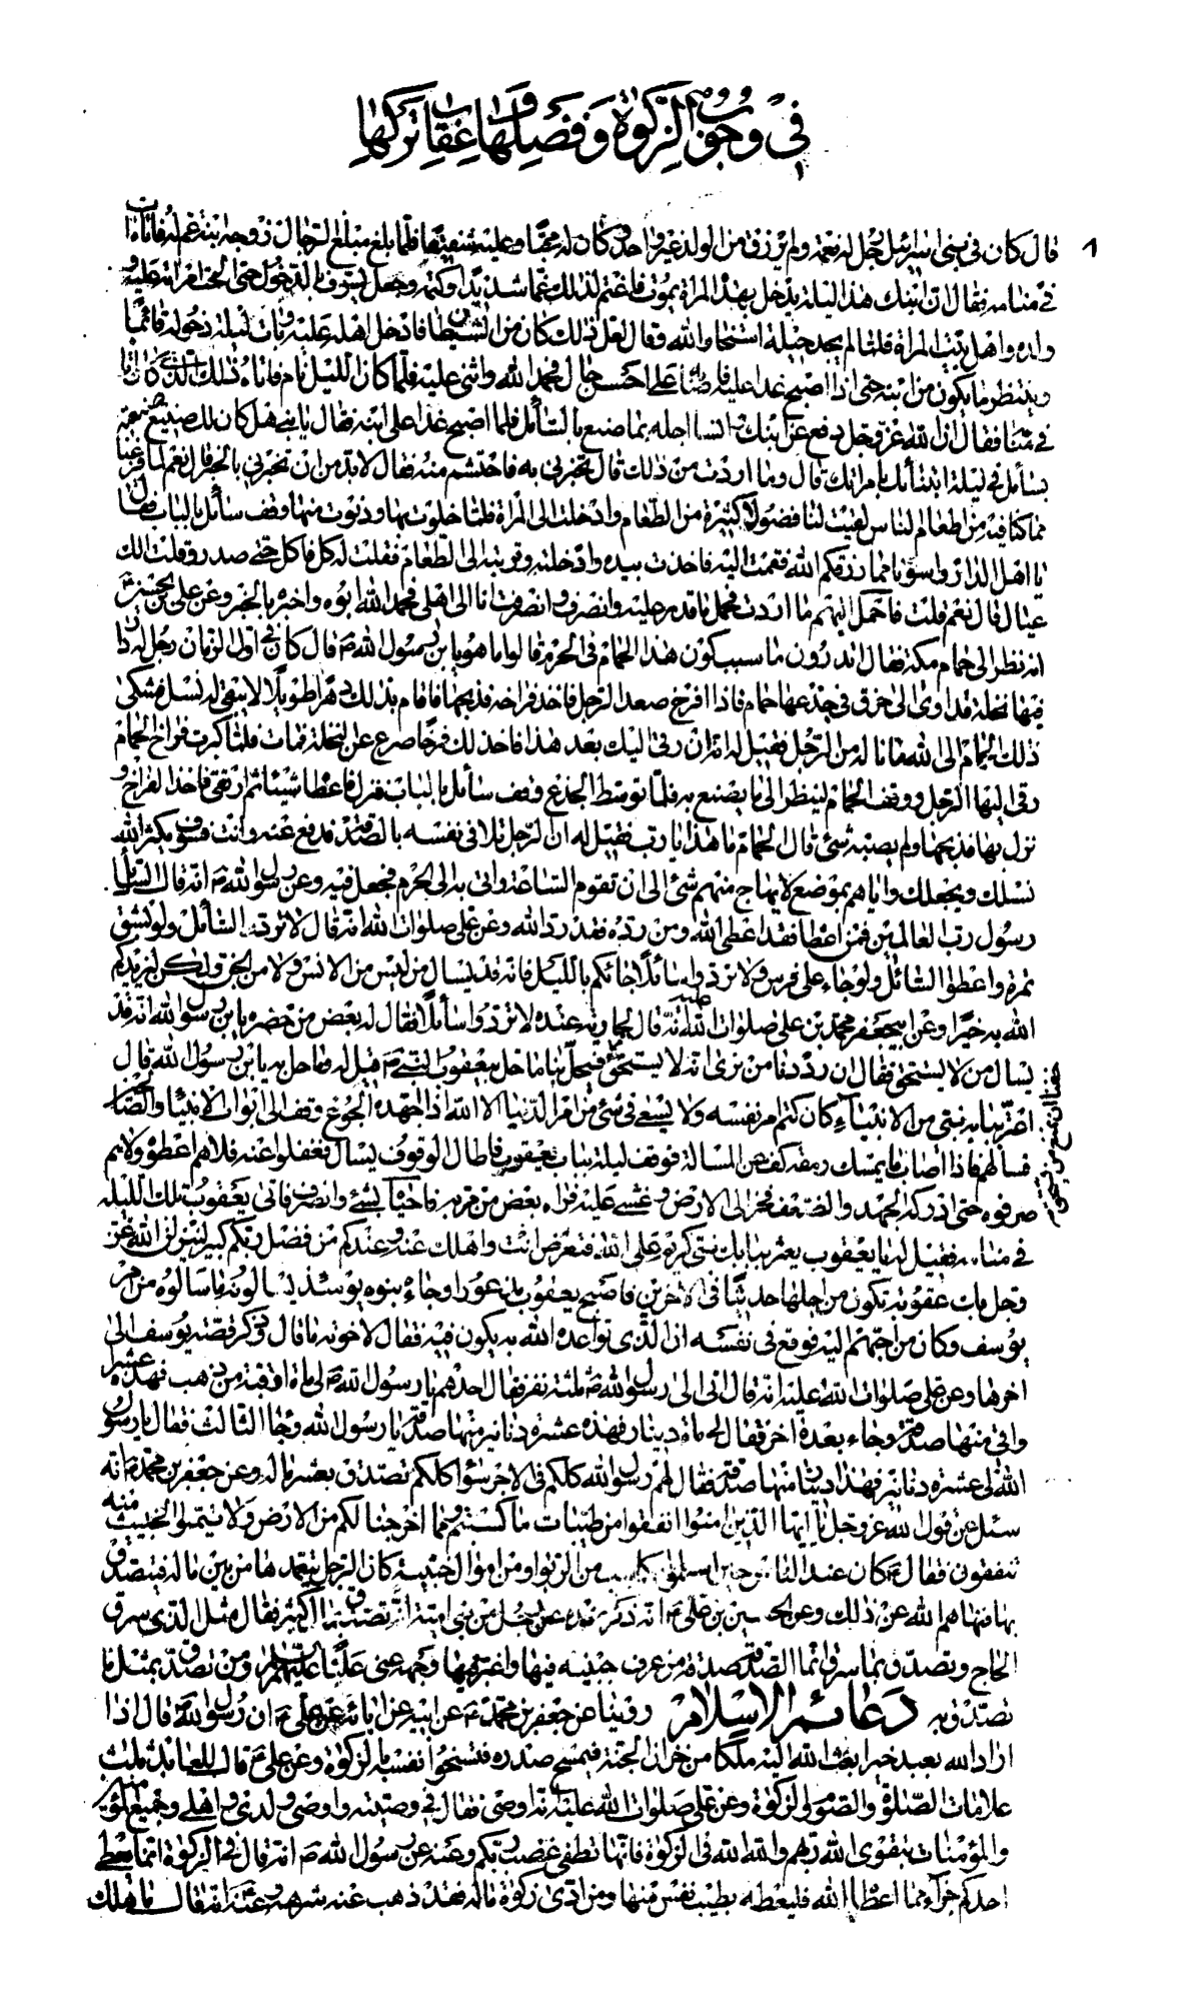 في وجوب الزكوة وفضلها وعقاب تركها
قال كان في بني اسرائيل رجل له نعمة ولم يرزق من الولد غير واحد وكان له محبا وعليه شفيقا فلما بلغ مبلغ الرجال زوجه ابنة عم له فاتاه ات
في منامه فقال ان ابنك هذا ليلة يدخل بهذه المراة يموت فاغتم لذلك غما شديدا وكتمه وجعل يسوف الدخول حتى الحت امراته عليه و
ولده واهل بيت المراة فلما لم يجد حيلة استخار الله وقال لعل ذلك كان من الشيطان فادخل اهله عليه وبات ليلة دخوله قائما
وينتظر ما يكون من ابنه حتى اذا اصبح غدا عليه فاصابه على احسن حال فحمد الله واثنى عليه فلما كان الليل نام فاتاه ذلك الذي كان اتاه
في منامه فقال ان الله عز وجل دفع عن ابنك وانسا اجله بما صنع بالسائل فلما اصبح غدا على ابنه فقال يا بني هل كان لك صنيع صنعته
بسائل في ليلة ابتنائك بامراتك قال وما اردت من ذلك قال تخبرني به فاحتشم منه فقال لابد من ان تخبرني بالخبر قال نعم لما فرغنا
مما كنا فيه من اطعام الناس بقيت لنا فضول كثيرة من الطعام وادخلت الى المراة فلما خلوت بها ودنوت منها وقف سائل بالباب فقال
يا اهل الدار واسونا مما رزقكم الله فقمت اليه فاخذت بيده وادخلته وقربته الى الطعام فقلت له كل فاكل حتى صدر وقلت الك
عيال قال نعم قلت فاحمل اليهم ما اردت فحمل ما قدر عليه وانصرف وانصرفت انا الى اهلي فحمد الله ابوه واخبره بالخبر وعن علي بن الحسين
انه نظر الى حمام مكة فقال اتدرون ما سبب كون هذا الحمام في الحرم قالوا ما هو يا بن رسول الله ص قال كان في اول الزمان رجل له دار
فيها نخلة قد اوى الى خرق في جذعها حمام فاذا افرخ صعد الرجل فاخذ فراخه فذبحها فاقام بذلك دهرا طويلا لا يبقى له نسل فشكى
ذلك الحمام الى الله ما ناله من الرجل فقيل له انه ان رقى اليك بعد هذا فاخذ لك فرخا صرع عن النخلة فمات فلما كبرت فراخ الحمام
رقى اليها الرجل ووقف الحمام لينظر الى ما يصنع به فلما توسط الجذع وقف سائل بالباب فنزل فاعطاه شيئا ثم ارتقى فاخذ الفراخ و
نزل بها فذبحها ولم يصبه شئ قال الحمام ما هذا يا رب فقيل له ان الرجل تلافى نفسه بالصدقة فدفع عنه وانت فسوف يكثر الله
نسلك ويجعلك واياهم بموضع لا يهاج منهم شئ الى ان تقوم الساعة واتى به الى الحرم فجعل فيه وعن رسول الله ص انه قال السائل
رسول رب العالمين فمن اعطاه فقد اعطى الله ومن رده فقد رد الله وعن علي صلوات الله انه قال لا تردوا السائل ولو بشق
تمرة واعطوا السائل ولو جاء على فرس ولا تردوا سائلا جائكم بالليل فانه قد يسال من ليس من الانس ولا من الجن ولكن ليزيدكم
الله به خيرا وعن ابي جعفر محمد بن علي صلوات الله عليه انه قال لجارية عنده لا تردوا سائلا فقال له بعض من حضره يا بن رسول الله انه قد
يسال من لا يستحق فقال ان رددنا من نرى انه لا يستحق خفنا ان نمنع من يستحق فيحل بنا ما حل بيعقوب النبي ع قيل له وما حل به يا بن رسول الله قال
اعتر ببابه نبي من الانبياء كان يكتم امر نفسه ولا يسعى في شئ من امر الدنيا الا اذا اجهده الجوع وقف الى ابواب الانبياء والصالحين
فسالهم فاذا اصاب ما يمسك رمقه كف عن المسالة فوقف ليلة بباب يعقوب فاطال الوقوف يسال فغفلوا عنه فلا هم اعطوه ولا هم
صرفوه حتى ادركه الجهد والضعف فخر الى الارض وغشي عليه فراه بعض من مر به فاحياه بشئ وانصرف فاتى يعقوب تلك الليلة
في منامه فقيل له يا يعقوب يعتر ببابك نبي كريم على الله فتعرض انت واهلك عنه وعندكم من فضل ربكم كثير لينزلن الله عز
وجل بك عقوبة تكون من اجلها حديثا في الاخرين فاصبح يعقوب مذعورا وجاءه بنوه يومئذ يسالونه ما سالوه من امر
يوسف وكان من احبهم اليه فوقع في نفسه ان الذي تواعده الله به يكون فيه فقال لاخوته ما قال وذكر قصة يوسف الى
اخرها وعن علي صلوات الله عليه انه قال اتى الى رسول الله ص ثلثة نفر فقال احدهم يا رسول الله ص لي مائة اوقية من ذهب فهذه عشرة
اواقي منها صدقة وجاء بعده اخر فقال لي مائة دينار فهذه عشرة دنانير منها صدقة يا رسول الله وجاء الثالث فقال يا رسول
الله لي عشرة دنانير فهذا دينار منها صدقة فقال لهم رسول الله كلكم في الاجر سواء كلكم تصدق بعشر ماله وعن جعفر بن محمد ع انه
سئل عن قول الله عز وجل يا ايها الذين امنوا انفقوا من طيبات ما كسبتم ومما اخرجنا لكم من الارض ولا تيمموا الخبيث منه
تنفقون فقال ع كان عند الناس حين اسلموا مكاسب من الربوا ومن اموال خبيثة كان الرجل يتعمدها من بين ماله فيتصدق
بها فنهاهم الله عن ذلك وعن الحسين بن علي ع انه ذكر عنده عن رجل من بني امية انه تصدق بمال كثير فقال مثل الذي سرق
الحاج وتصدق بما سرق انما الصدقة صدقة من عرق جبينه فيها واغبر فيها وجهه عنى عليا عليه السلام ومن تصدق بمثل ما
تصدق به دعائم الاسلام روينا عن جعفر بن محمد ع عن ابيه عن ابائه عن علي ع ان رسول الله ص قال اذا
اراد الله بعبد خيرا بعث الله اليه ملكا من خزان الجنة فيمسح صدره فتسخو نفسه بالزكوة وعن علي ع قال للعابد ثلث
علامات الصلوة والصوم والزكوة وعن علي صلوات الله عليه انه اوصى فقال في وصيته واوصي ولدي واهلي وجميع المؤمنين
والمؤمنات بتقوى الله ربهم والله الله في الزكوة فانها تطفي غضب ربكم وعنه عن رسول الله ص انه قال في الزكوة انما يعطي
احدكم جزءا مما اعطاه الله فليعطه بطيب نفس منها ومن ادى زكوة ماله فقد ذهب عنه شره وعنه ع انه قال ما هلك
خفنا ان نمنع من يستحق